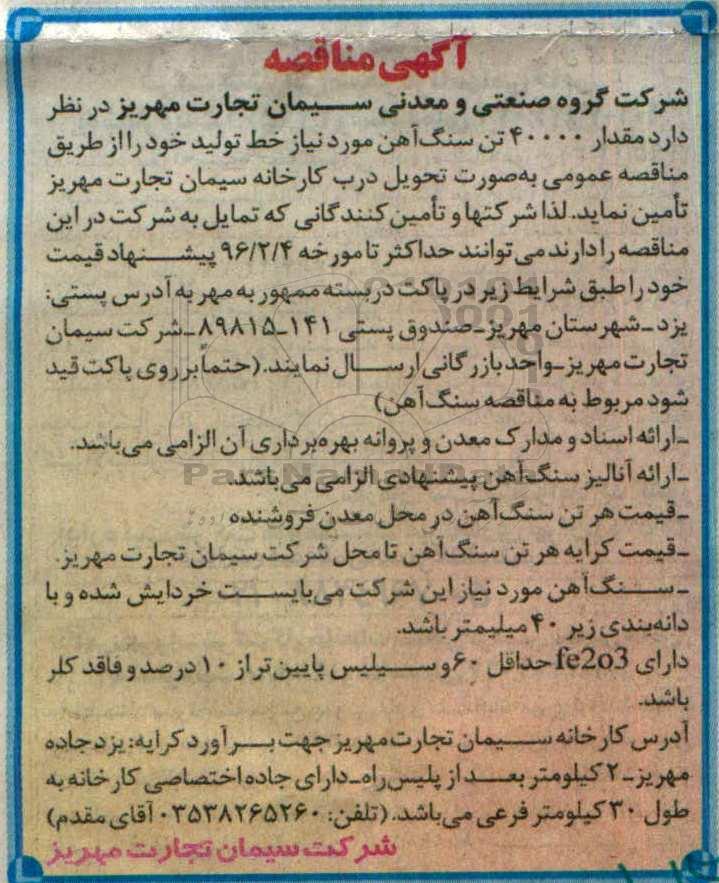 آگهی مناقصه
شرکت گروه صنعتی و معدنی سیمان تجارت مهریز در نظر
دارد مقدار ۴۰۰۰۰ تن سنگ‌آهن مورد نیاز خط تولید خود را از طریق
مناقصه عمومی به‌صورت تحویل درب کارخانه سیمان تجارت مهریز
تأمین نماید. لذا شرکتها و تأمین کنندگانی که تمایل به شرکت در این
مناقصه را دارند می‌توانند حداکثر تا مورخه ۹۶/۲/۴ پیشنهاد قیمت
خود را طبق شرایط زیر در پاکت دربسته ممهور به مهر به آدرس پستی:
یزد-شهرستان مهریز-صندوق پستی ۱۴۱-۸۹۸۱۵-شرکت سیمان
تجارت مهریز-واحد بازرگانی ارسال نمایند.(حتماً بر روی پاکت قید
شود مربوط به مناقصه سنگ‌آهن)
-ارائه اسناد و مدارک معدن و پروانه بهره‌برداری آن الزامی می‌باشد.
-ارائه آنالیز سنگ‌آهن پیشنهادی الزامی می‌باشد.
-قیمت هر تن سنگ‌آهن در محل معدن فروشنده
-قیمت کرایه هر تن سنگ‌آهن تا محل شرکت سیمان تجارت مهریز.
-سنگ‌آهن مورد نیاز این شرکت می‌بایست خردایش شده و با
دانه‌بندی زیر ۴۰ میلیمتر باشد.
دارای fe2o3 حداقل ۶۰ و سیلیس پایین‌تر از ۱۰ درصد و فاقد کلر
باشد.
آدرس کارخانه سیمان تجارت مهریز جهت برآورد کرایه: یزد جاده
مهریز-۲ کیلومتر بعد از پلیس‌راه-دارای جاده اختصاصی کارخانه به
طول ۳۰ کیلومتر فرعی می‌باشد.(تلفن: ۰۳۵۳۸۲۶۵۲۶۰ آقای مقدم)
شرکت سیمان تجارت مهریز